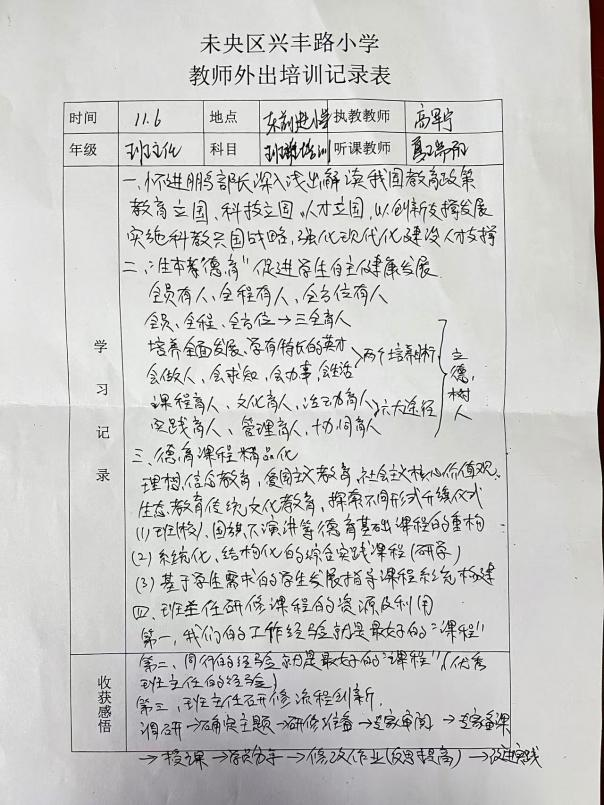 未央区兴丰路小学
教师外出培训记录表
时间 11.6 地点 东前进小学 执教教师
年级 班主任 科目 培训 听课教师
一、怀进鹏部长深入浅出解读我国教育政策
教育立国、科技立国、人才立国,以创新支撑发展
实施科教兴国战略,强化现代化建设人才支撑
二、注本"德育"促进学生自主健康发展
全员育人、全程育人、全方位育人
全员、全程、全方位→三全育人
培养全面发展、学有特长的英才
会做人、会求知、会办事、会生活
两个培养目标
课程育人、文化育人、活动育人
实践育人、管理育人、协同育人
六大途径
立德树人
三、德育课程精品化
理想信念教育,爱国主义教育,社会主义核心价值观、
生态教育传统文化教育,探索不同形式升旗仪式
(1)班(校)、国旗下演讲等德育基础课程的重构
(2)系统化、结构化的综合实践课程(研学)
(3)基于学生需求的学生发展指导课程系统构建
四、班主任研修课程的资源及利用
第一,我们的工作经验就是最好的"课程"
第二、同伴的经验就是最好的"课程"(优秀
班主任的经验)
第三、班主任研修流程创新,
调研→确定主题→研修准备→专家审阅→专家备课
→授课→学员分享→修改作业(反思提高)→改进实践
学习记录
收获感悟